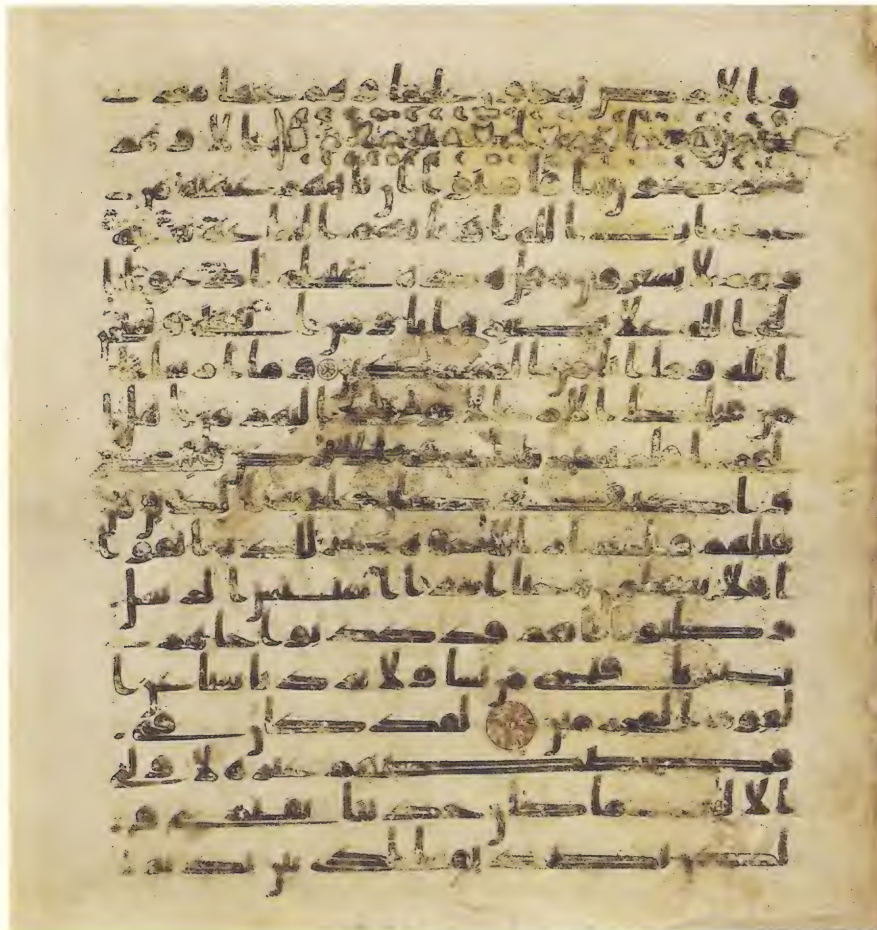 والارض يمرون عليها وهم عنها معر
ضون وما يومن اكثرهم بالله الا وهم
مشركون افامنوا ان تاتيهم غشية من
عذاب الله او تاتيهم الساعة بغتة
وهم لا يشعرون قل هذه سبيلي ادعوا ا
لى الله على بصيرة انا ومن اتبعني وسبحن
الله وما انا من المشركين وما ارسلنا
من قبلك الا رجالا نوحي اليهم من اهل ا
لقرى افلم يسيروا في الارض فينظر
وا كيف كان عقبة الذين من
قبلهم ولدار الاخرة خير للذين اتقوا
افلا تعقلون حتى اذا استيس الرسل
وظنوا انهم قد كذبوا جاهم
نصرنا فنجي من نشا ولا يرد باسنا عن ا
لقوم المجرمين لقد كان في
قصصهم عبرة لاولي
الالبب ما كان حديثا يفترى و
لكن تصديق الذي بين يديه